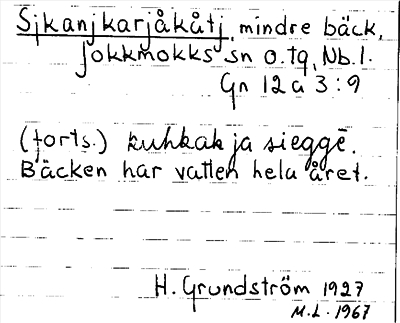 Sjkanjkarjåkåtj, mindre bäck,
Jokkmokks sn o. tg, Nb. l.
Gn 12 a 3 : 9
(forts.) kuhkak ja sieggē.
Bäcken har vatten hela året.
H. Grundström 1927
M.L. 1967